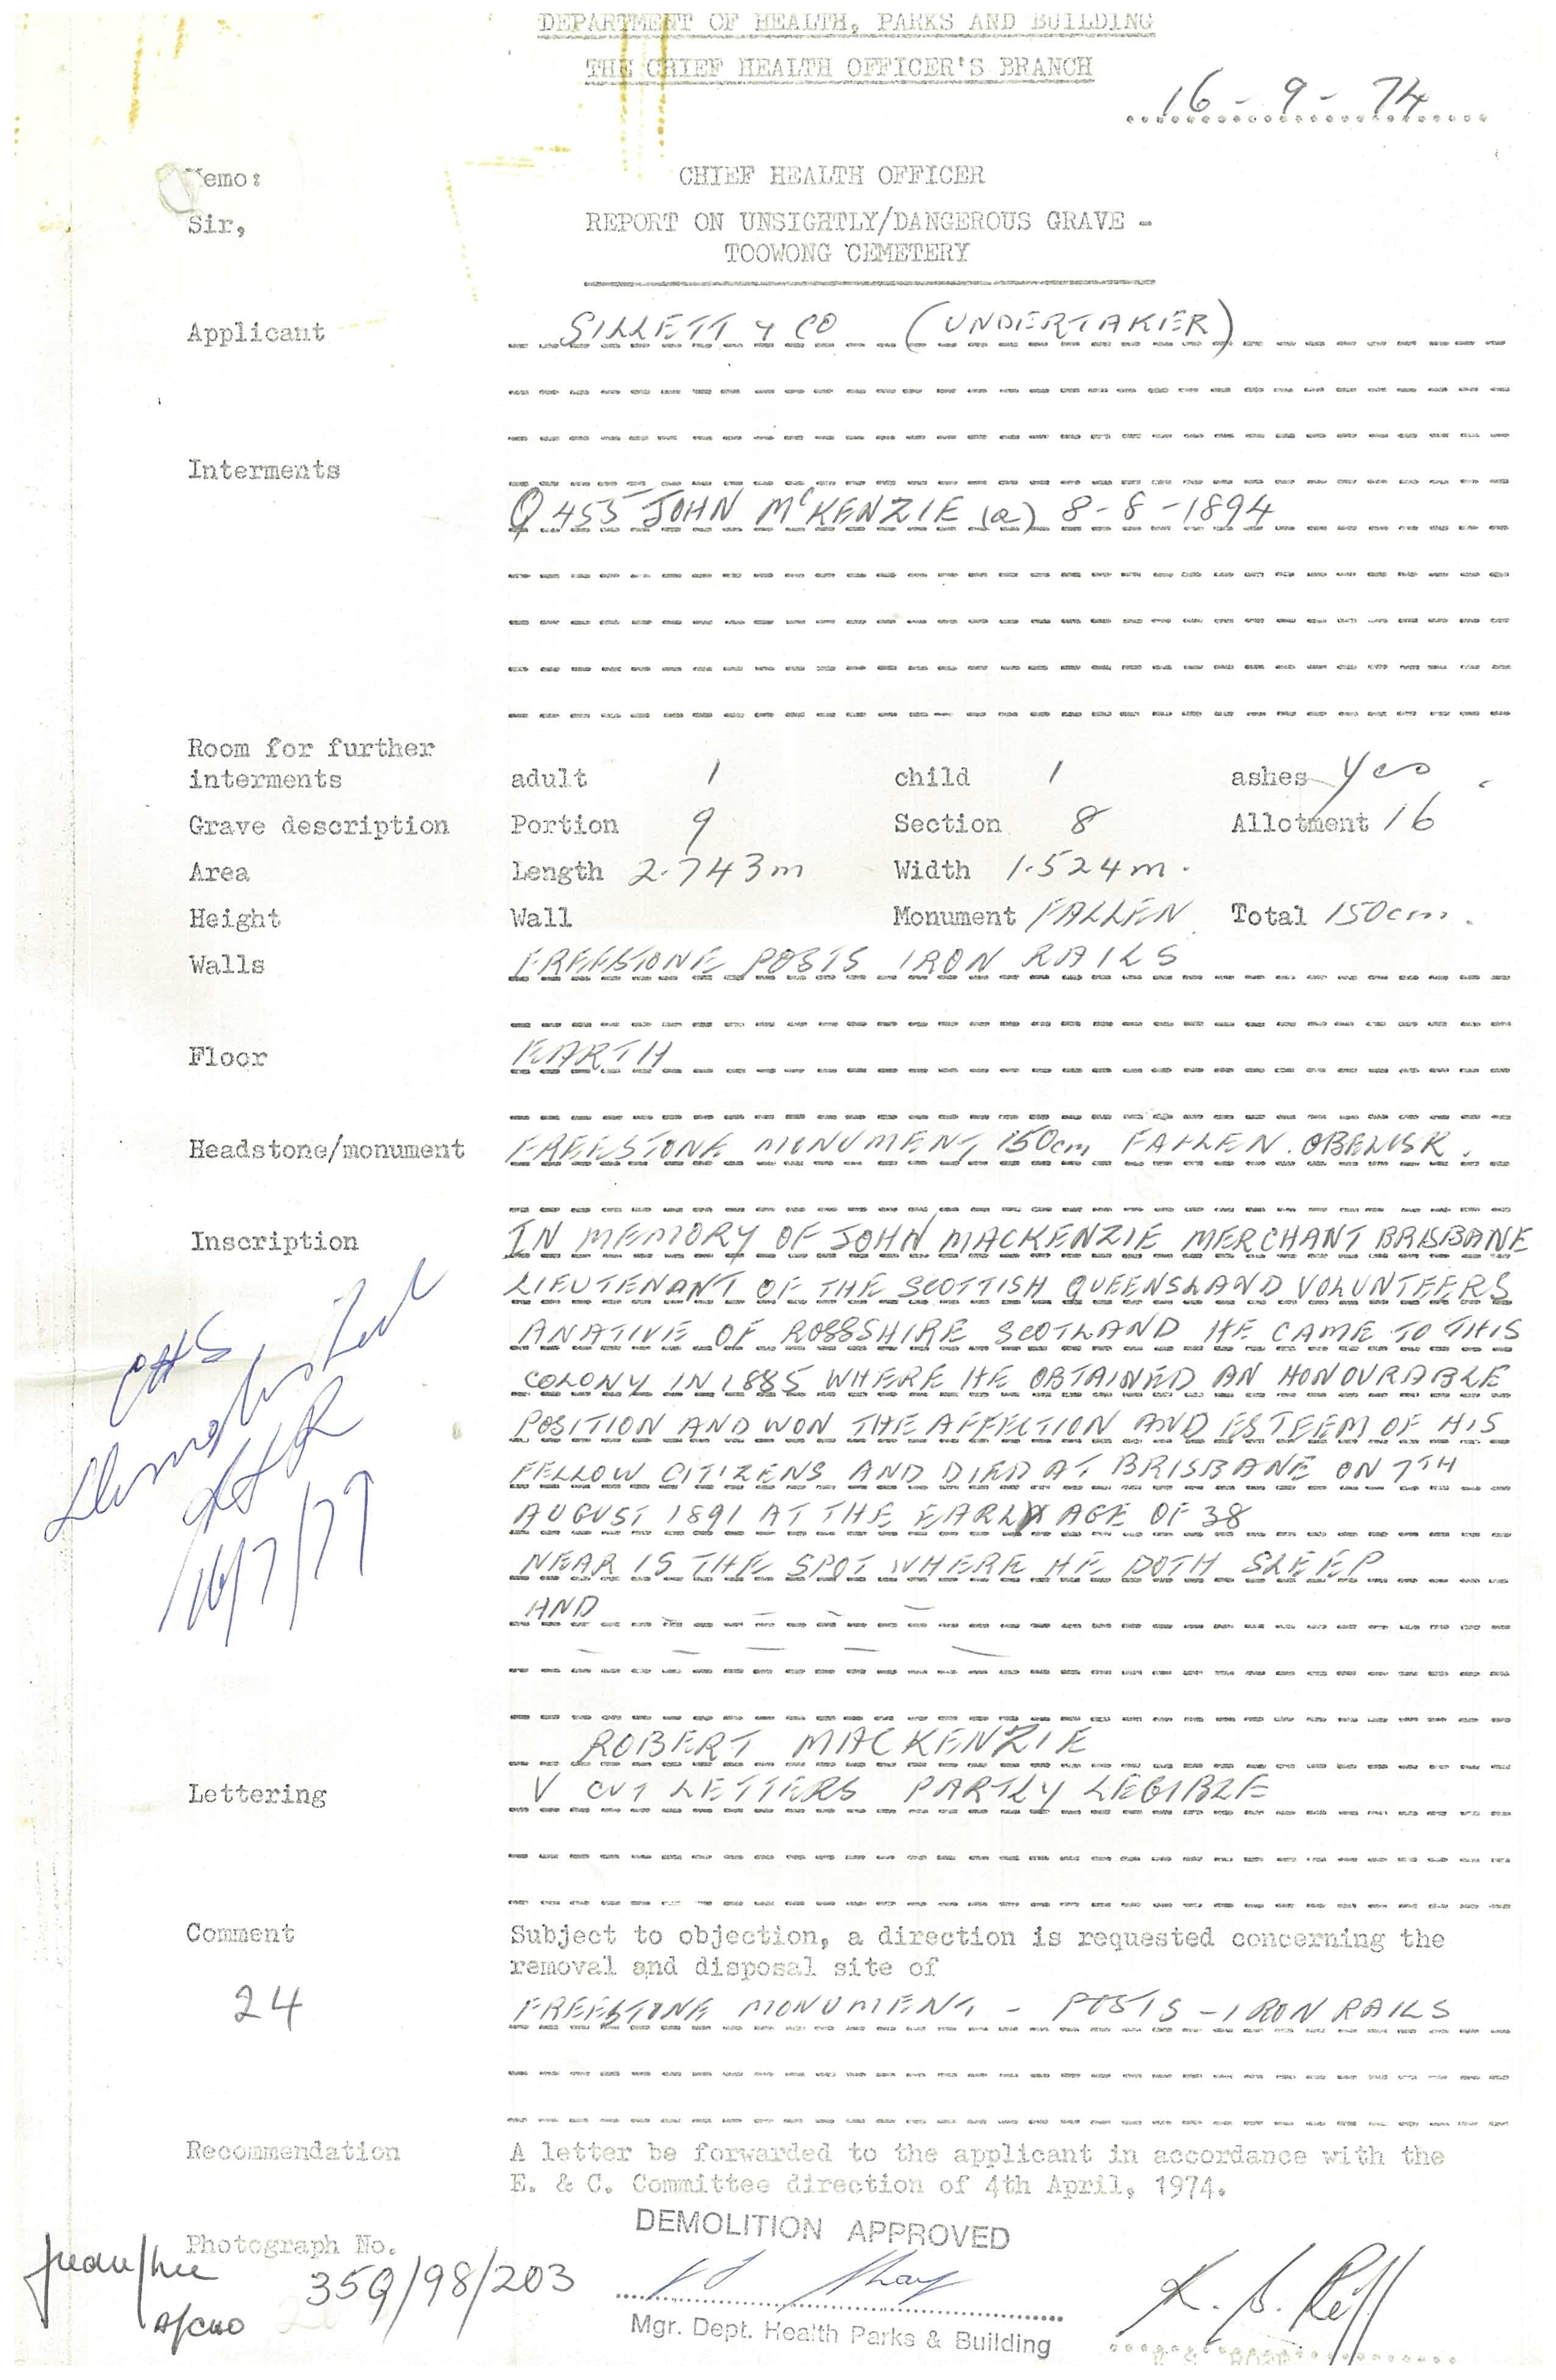 DEPARTMENT OF HEALTH, PARKS AND BUILDING
THE CHIEF HEALTH OFFICER'S BRANCH
16-9-74
Memo: CHIEF HEALTH OFFICER
Sir, REPORT ON UNSIGHTLY/DANGEROUS GRAVE -
TOOWONG CEMETERY
Applicant SILLETT & CO (UNDERTAKER)
Interments
Q 455 JOHN McKENZIE (a) 8-8-1894
Room for further
interments adult 1 child 1 ashes yes.
Grave description Portion 9 Section 8 Allotment 16
Area Length 2.743m Width 1.524m.
Height Wall Monument FALLEN Total 150cm.
Walls FREESTONE POSTS IRON RAILS
Floor EARTH
Headstone/monument FREESTONE MONUMENT, 150cm FALLEN. OBELISK.
Inscription IN MEMORY OF JOHN MACKENZIE MERCHANT BRISBANE
LIEUTENANT OF THE SCOTTISH QUEENSLAND VOLUNTEERS
A NATIVE OF ROSSSHIRE SCOTLAND HE CAME TO THIS
COLONY IN 1885 WHERE HE OBTAINED AN HONOURABLE
POSITION AND WON THE AFFECTION AND ESTEEM OF HIS
FELLOW CITIZENS AND DIED AT BRISBANE ON 7TH
AUGUST 1891 AT THE EARLY AGE OF 38
NEAR IS THE SPOT WHERE HE DOTH SLEEP
AND - - - -
- - - - -
ROBERT MACKENZIE
Lettering V CUT LETTERS PARTLY LEGIBLE
CHS
Demolished
16/7/79
Comment Subject to objection, a direction is requested concerning the
removal and disposal site of
24 FREESTONE MONUMENT - POSTS - IRON RAILS
Recommendation A letter be forwarded to the applicant in accordance with the
E. & C. Committee direction of 4th April, 1974.
DEMOLITION APPROVED
Photograph No.
359/98/203
A/CHO
Mgr. Dept. Health Parks & Building